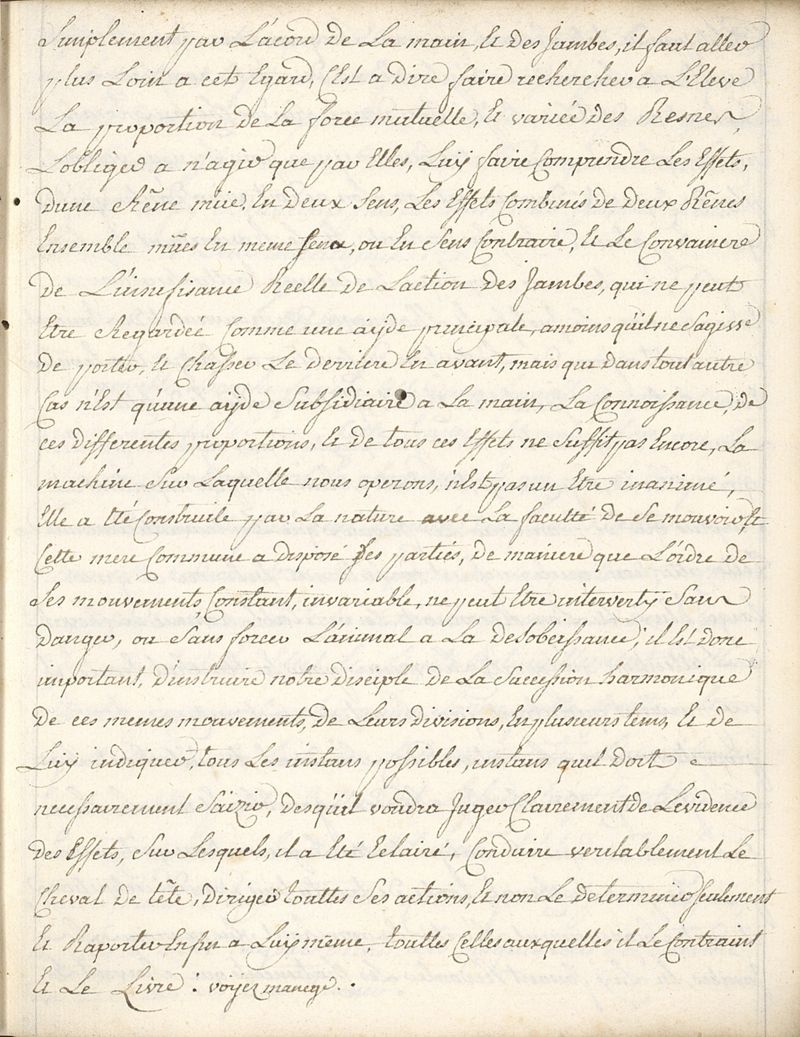 Simplement par L'acord de La main, Et Des Jambes, il faut aller
plus Loin a cet Egard, C'Est a dire faire rechercher a L'Eleve
La proportion de La force mutuelle, Et variée Des Resnes,
L'obliger a n'agir que par Elles, Luy faire Comprendre Les Effets,
D'une Rêne müe, En deux Sens, Les Effets Combinés de deux Rênes
Ensemble mües En meme Sens, ou En Sens Contraire, Et Le Convaincre
de L'insufisance Reelle de L'action Des Jambes, qui ne peut
Etre Regardée Comme une ayde principale, a moins qu'il ne S'agisse
De porter, Et Chasser Le derriere En avant, mais qui dans tout autre
Cas n'Est qu'une ayde Subsidiaire a La main, La Connoissance, de
ces differentes proportions, Et de tous ces Effets ne Suffit pas Encore, La
machine Sur Laquelle nous operons, n'Est pas un Etre inanimé,
Elle a Eté Construite par La nature avec La faculté de Se mouvoir, Et
Cette mere Commune a disposé Ses parties, de maniere que L'ordre de
Ses mouvements Constant, invariable, ne peut Etre interverty Sans
Danger, ou Sans forcer L'animal a La desobeissance, il Est donc
important, D'instruire notre disciple de La Succession harmonique
De ces memes mouvements, de Leurs divisions, En plusieurs tems, Et de
Luy indiquer, tous Les instans possibles, instans quil Doit
necessairement Saizir, Desqu'il voudra Juger Clairement de L'evidence
Des Effets, Sur Lesquels, il a Eté Eclairé, Conduire veritablement Le
Cheval De tête, Diriger touttes Ses actions, Et non Le determiner seulement
Et Raporter Enfin a Luy même, touttes Celles auxquelles il Le Contraint
Et Le Livre : voyez manege.